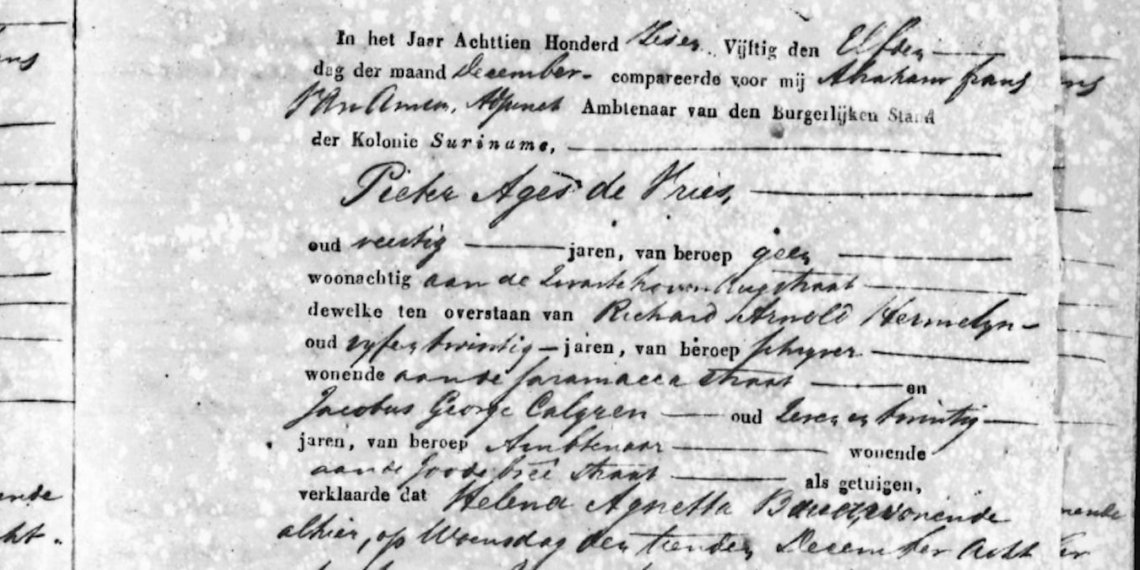 In het Jaar Achttien Honderd Zesen Vijftig den Elfden
dag der maand December compareerde voor mij Abraham frans
Van Amen, Adjunct Ambtenaar van den Burgerlijken Stand
der Kolonie Suriname,
Pieter Ages de Vries,
oud veertig jaren, van beroep geen
woonachtig aan de Zwartehoven Brugstraat
dewelke ten overstaan van Richard Arnold Hermelyn
oud vyfentwintig jaren, van beroep schryver
wonende aan de Saramacca straat en
Jacobus George Calgren oud Zeven en twintig
jaren, van beroep Ambtenaar wonende
aan de Joode breê straat als getuigen,
verklaarde dat Helena Agnetta wonende
alhier, op Woensdag den tienden December acht